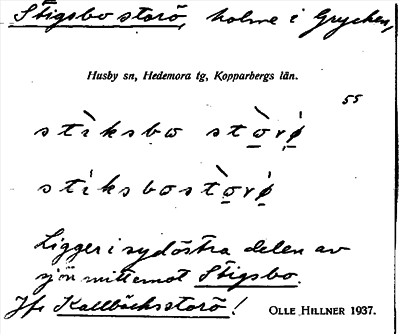 Stigsbo storö, holme i Grycken,
Husby sn, Hedemora tg, Kopparbergs län.
55
stìksbo stò̱rǿ̱
stíksbostò̱rǿ̱
Ligger i sydöstra delen av
sjön mittemot Stigsbo.
Jfr Kallbäcksstorö!
OLLE HILLNER 1937.